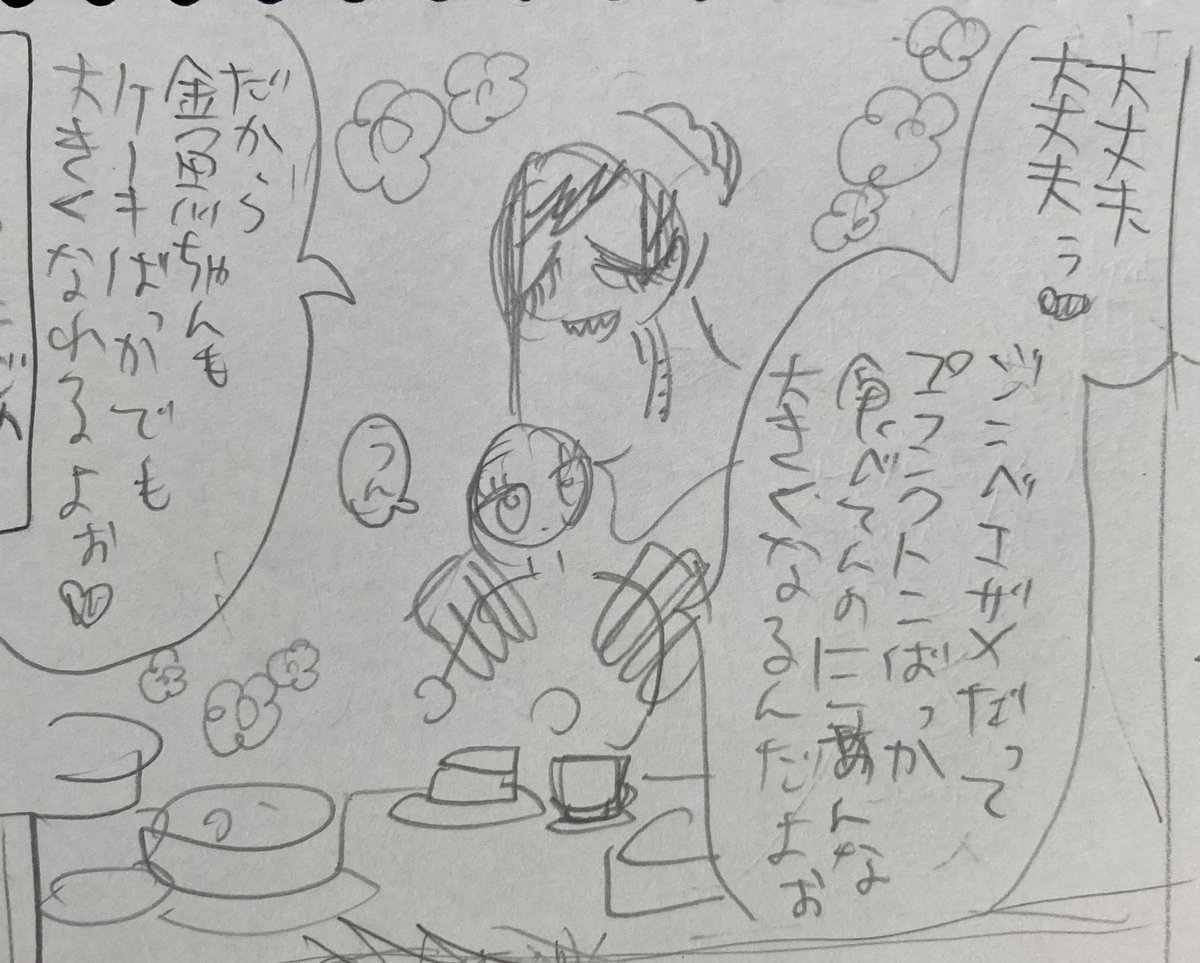 大丈夫
大丈夫う
ジンベエザメだって
プランクトンばっか
食べてんのにあんな
大きくなるんだよお
うん
だから
金魚ちゃんも
ケーキばっかでも
大きくなれるよぉ♡